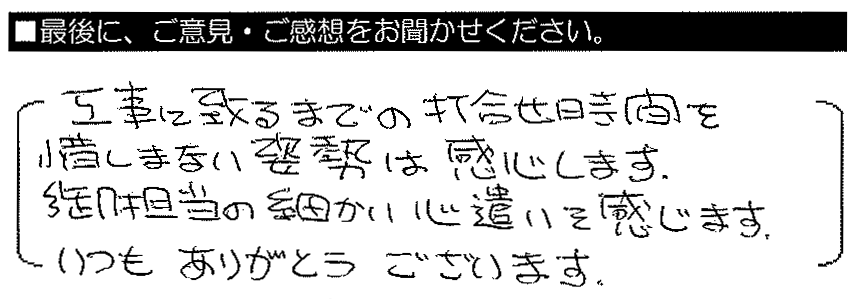 ■最後に、ご意見・ご感想をお聞かせください。
工事に致るまでの打合せ時間を
惜しまない姿勢は感心します.
担当の細かい心遣いを感じます.
いつも ありがとう ございます.